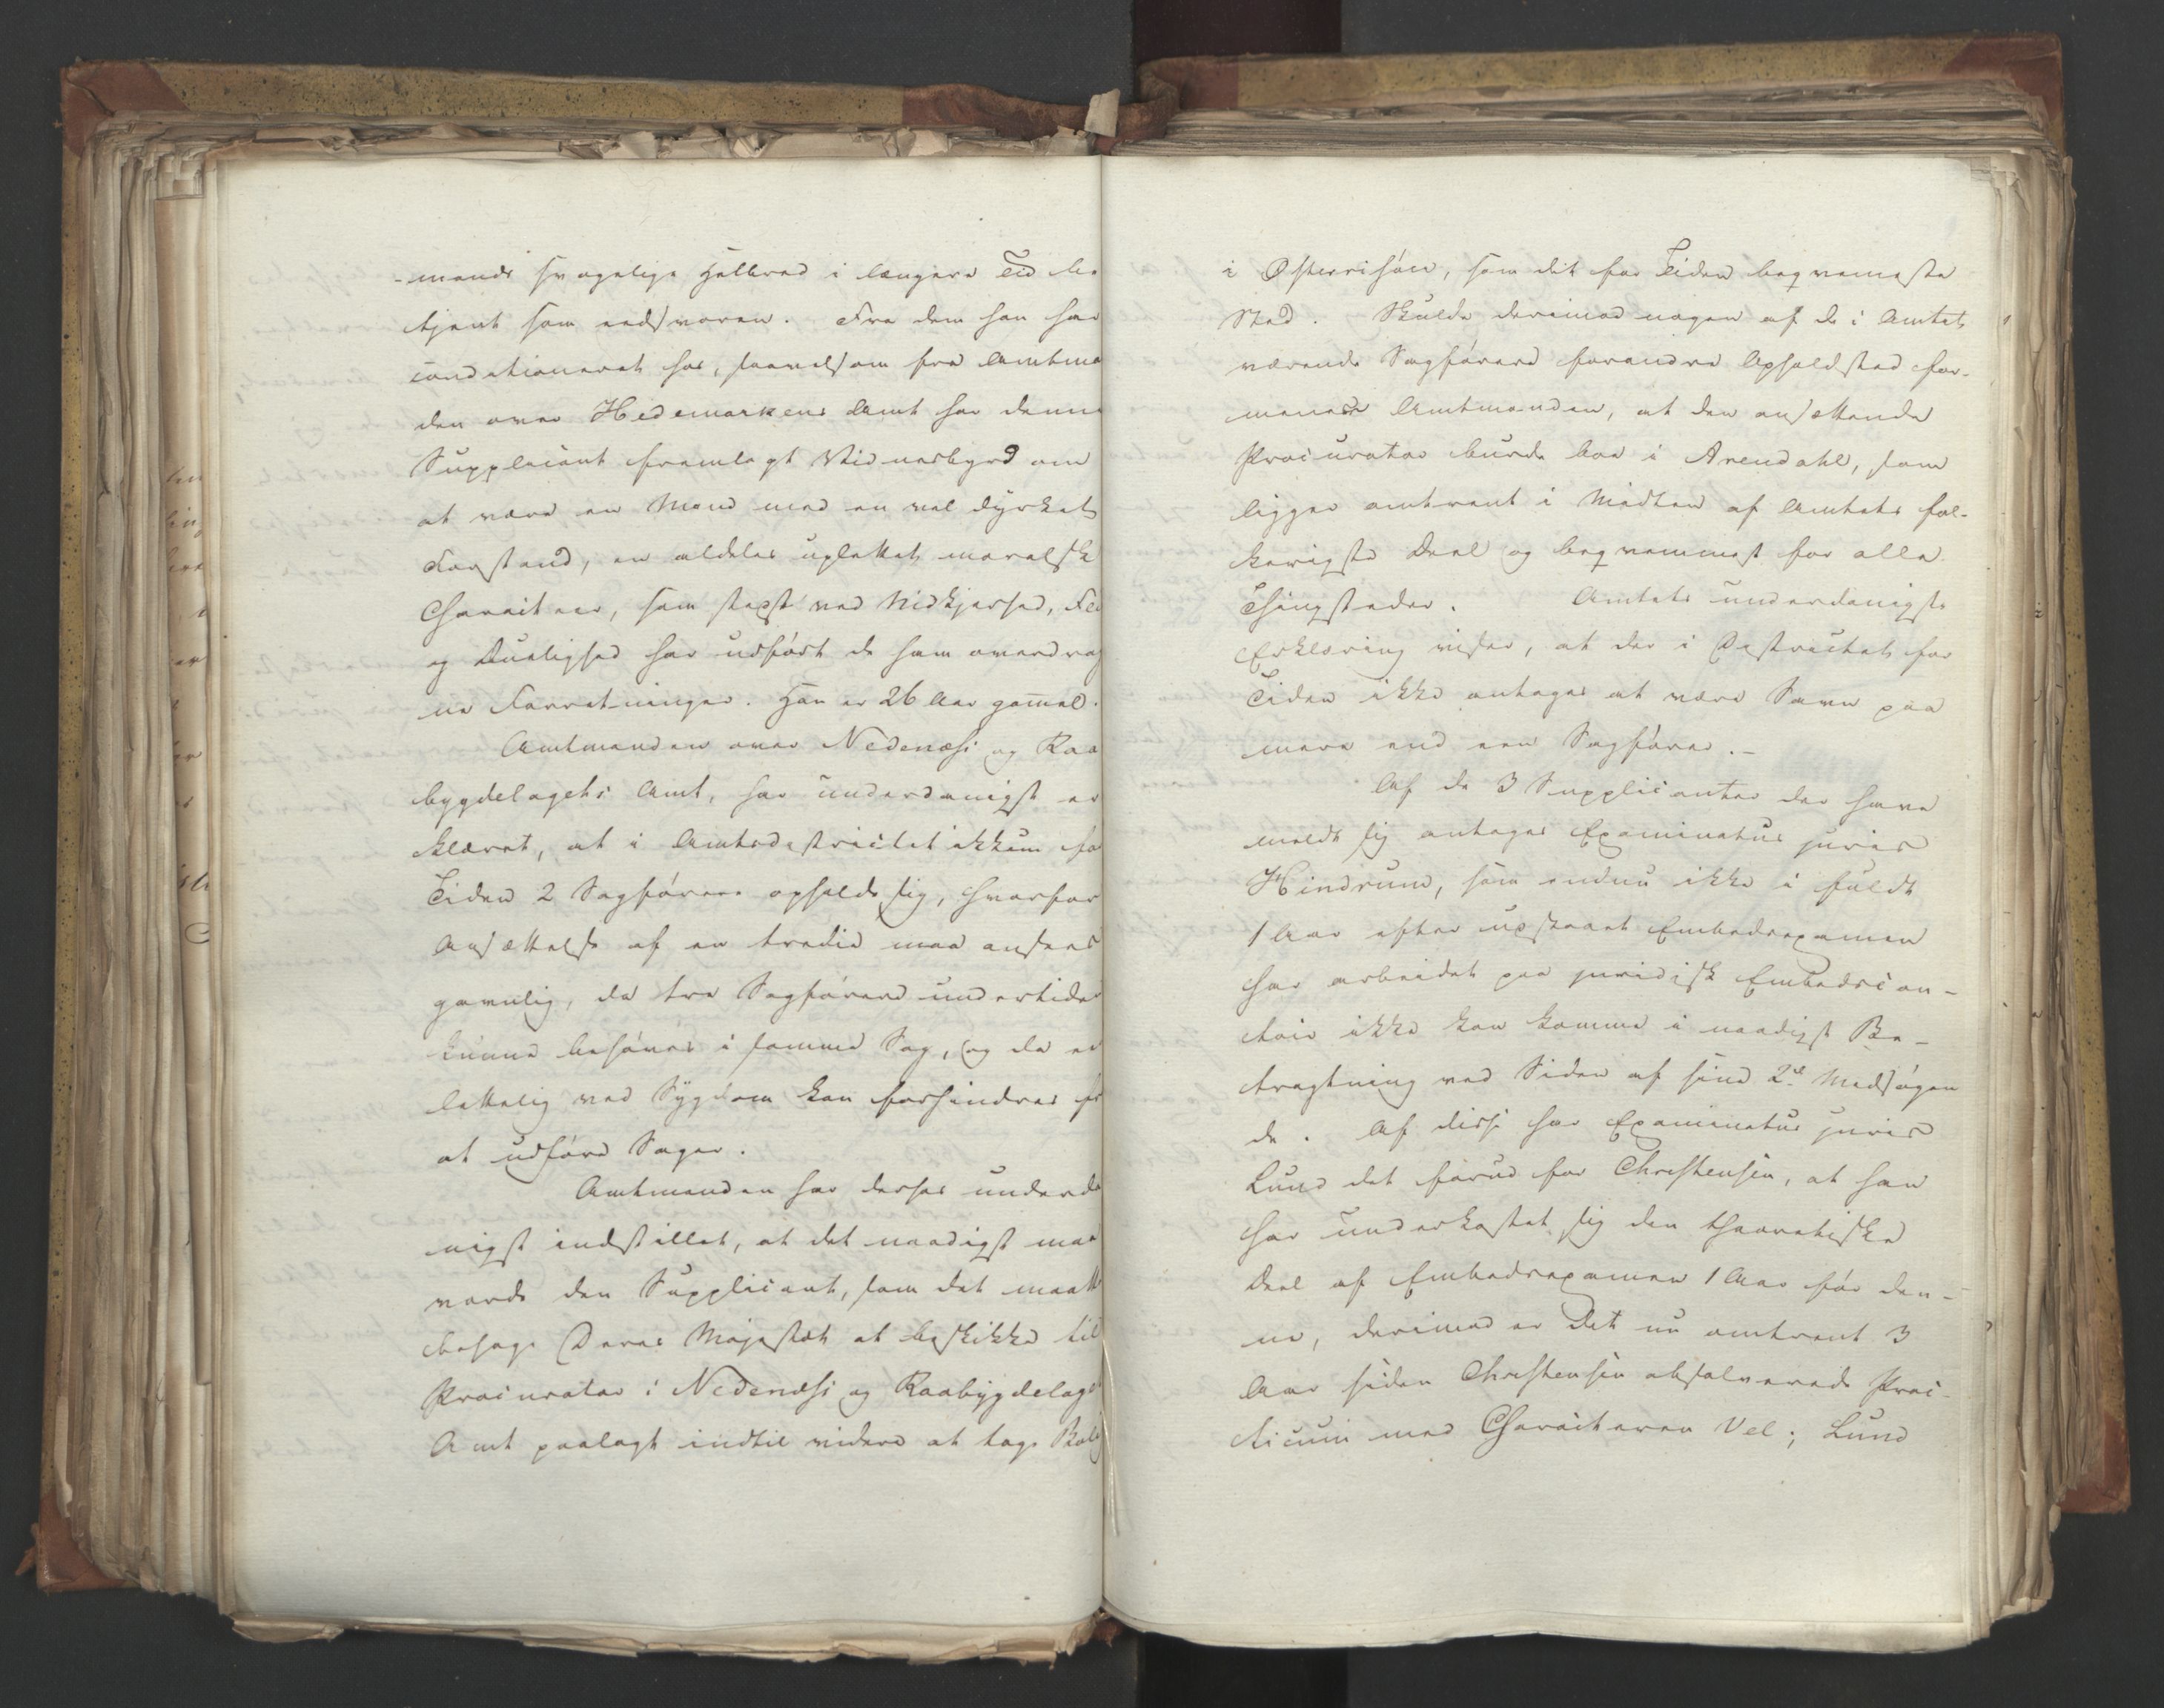 -mands svagelige Helbred i længere Tid be
tjent som edsvoren. Fra dem han har
conditioneret hos, saavelsom fra Amtma
den over Hedemarkens Amt har denne
Supplicant fremlagt Vidnesbyrd om
at være en Mand med en vel dyrket
Forstand, en aldeles uplettet moralsk
Charackteer, som stedse med Nidkjerhed, Fli
og Duelighed har udført de ham overdrag
ne Forretninger. Han er 26 Aar gammel.
Amtmanden over Nedenæss og Raa
bygdelagets Amt, har underdanigst er
klæret, at i Amtsdistrictet ikkun fo
Tiden 2 Sagførere opholde sig, hvorfor
Ansættelse af en tredie maa ansees
gavnlig, da tre Sagførere undertiden
kunne behøves i samme Sag, og da en
lettelig ved Sygdom kan forhindres fr
at udføre Sager.
Amtmanden har derhos underda
nigst indstillet, at det naadigst maa
vorde den Supplicant, som det maatte
behage Deres Majestæt at beskikke til
Procurator i Nedenæss og Raabygdelaget
Amt paalagt indtil videre at tage Bolig
i Østerrisøer, som dit for Tiden beqvemeste
Sted. Skulde derimod nogen af de i Amtet
værende Sagførere forandre Opholdsted for-
mener Amtmanden, at den ansættende
Procurator burde boe i Arendahl, som
ligger omtrent i Midten af Amtets fol-
kerigste Deel og beqvemmest for alle
Thingsteder. Amtets underdanigste
Erklæring viser, at der i Districtet for
Tiden ikke antages at være Savn paa
mere end een Sagfører.-
Af de 3 Supplicanter der have
meldt sig antages Examinatus juris
Hindrum, som endnu ikke i fuldt
1 Aar efter udstaaet Embedsexamen
har arbeidet paa juridisk Embedscon-
toir ikke kan komme i naadigst Be-
tragtning ved Siden af sine 2de Medsøgen
de. Af disse har Examinatus juris
Lund det forud for Christensen, at han
har underkastet sig den theoretiske
Deel af Embedsexamen 1 Aar før den-
ne, derimod er det nu omtrent 3
Aar siden Christensen absolverede Prac-
ticum med Characteren Vel; Lund